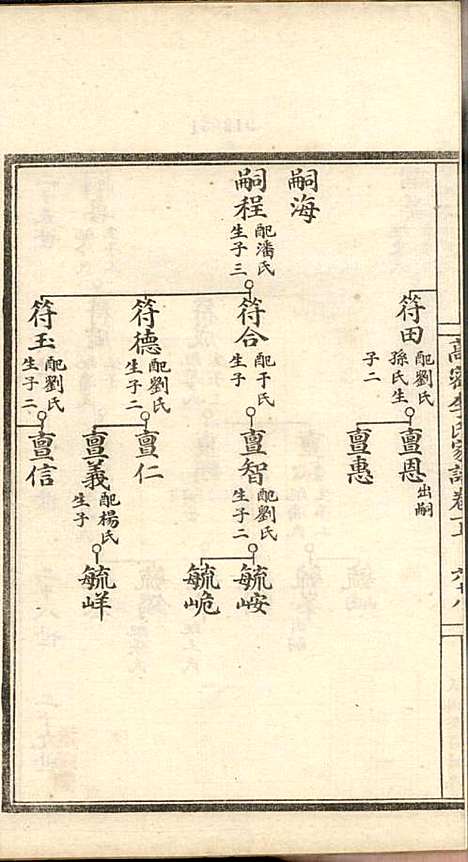 高密李氏家譜卷下
六十八
符田 配劉氏
孫氏生
子二
亶恩 出嗣
亶惠
嗣海
嗣程 配潘氏
生子三
符合 配于氏
生子
亶智 配劉氏
生子二
毓峖
毓峗
符德 配劉氏
生子二
亶仁
亶義 配楊氏
生子
毓㟄
符玉 配劉氏
生子二
亶信